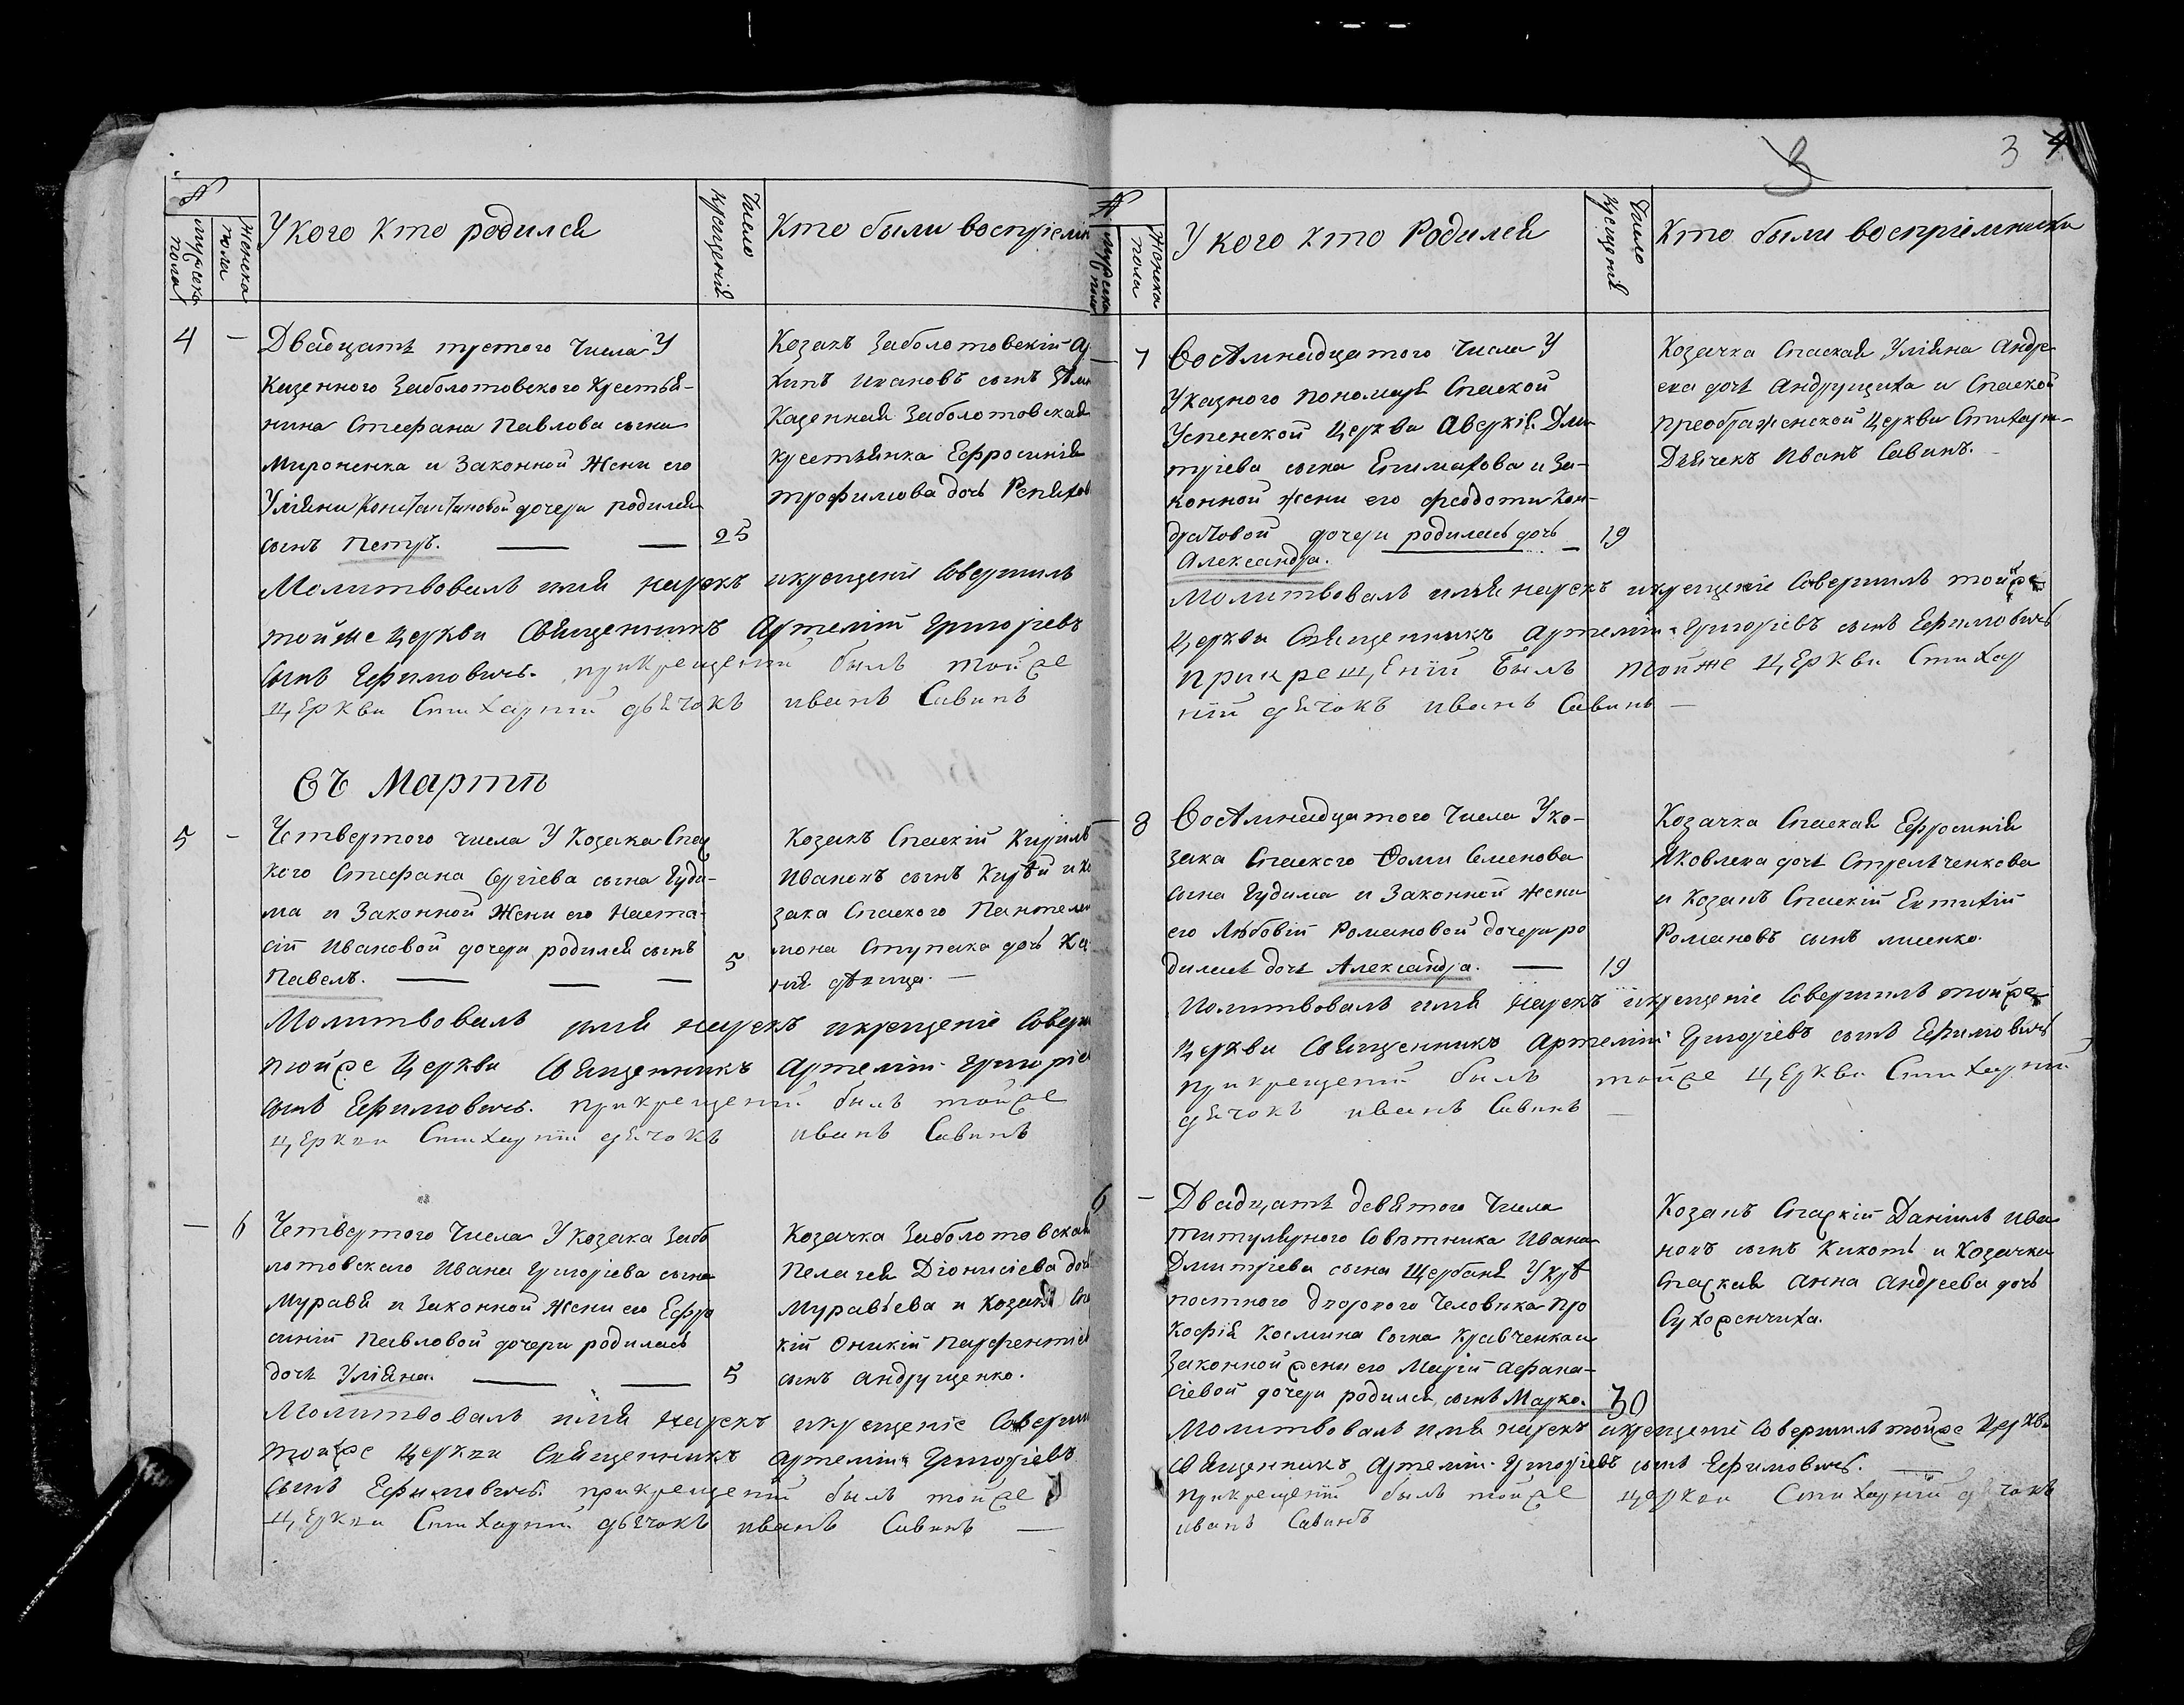 №
мужеска пола
женска пола
У кого кто родился
число крещенія
Кто были воспріемн
4 —
Двадцать третого числа У
Казенного Заболотовского Крестья-
нина Стефана Павлова сына
Мироненка и Законной Жени его
Уліяни Константиновой дочери родился
сынъ Петръ. — — 25
Козакъ Заболотовскій
хипъ Ивановъ сынъ
Казенная Заболотовская
крестьянка Ефросинія
трофимова дочь Репяхов
Молитвовалъ имя нарекъ икрещеніе Совершилъ
тойже церкви Священникъ Артемій Григоріевъ
сынъ Ефимовичъ. прикрещеніи былъ тойже
церкви Стихарній дьячокъ иванъ Савинъ
Съ Марта
5 —
Четвертого числа У Козака Спас
кого Стефана Сергіева сына Гуди-
ма и Законной Жени его Наста-
сіи Ивановой дочери родился сынъ
Павелъ. — — — 5
Козакъ Спаскій Кирилъ
Ивановъ сынъ и ко
зака Спаского Пантелей
мона Ступака дочь
нія дѣвица. —
Молитвовалъ имя нарекъ икрещеніе Совер
тойже Церкви Священникъ Артемій Григорие
сынъ Ефимовичъ. прикрещеніи былъ тойже
церкви Стихарній дячокъ иванъ Савинъ
— 6
Четвертого Числа У козака Забо
лотовскаго Ивана Григоріева сына
Муравя и Законной Жени его Ефро
синіи Павловой дочери родилась
дочь Уліяна. — — 5
Козачка Заболотовская
Пелагея Діонисіева доч
Муравъева и Козакъ Спа
кій Оникій Парфентіе
сынъ андрущенко.
Молитвовалъ имя нарекъ икрещеніе Соверши
тойже церкви Священникъ артемій Григоріевъ
сынъ Ефимовичъ. прикрещеніи былъ тойже
церкви Стихарній дьячокъ иванъ Савинъ —
3 3 4
№
мужеска пола
Женска пола
У кого кто Родился
Число крещенія
Кто были воспріемники
— 7
Восемнадцатого числа У
Указного пономаря Спаской
Успенской церкви Аверкія Дми-
тріева сына Епиматова и за-
конной жени его феодоти Кон-
дратовой дочери родилась дочь 19
Александра. —
Козачка Спаская Уліяна андре
ева дочь андрущиха и Спаской
преображенской Церкви Стихарн-
Дьячекъ Иванъ Савинъ.
Молитвовалъ имя нарекъ икрещеніе Совершилъ тойже
церкви Священникъ Артемій Григоріевъ сынъ Ефимовичъ
прикрещеніи былъ тойже церкви Стихар
ній дячокъ иванъ Савинъ —
— 8
Восемнадцатого Числа У ко-
зака Спаского Фоми Семенова
сына Гудима и Законной жени
его Любовіи Романовой дочери ро
дилась дочь Александра. — 19
Козачка Спаская Ефросинія
Яковлева дочь Стрельченкова
и Козакъ Спаскій Евтихій
Романовъ сынъ лисенко.
Молитвовалъ имя нарекъ икрещеніе Совершилъ тойже
церкви Священникъ Артемій Григоріевъ сынъ Ефимовичъ
прикрещеніи былъ тойже церкви Стихарній
дячокъ иванъ Савинъ —
6 —
Двадцать девятого Числа
титулярного Совѣтника Ивана
Дмитріева сына Щербаня У крѣ
постного дворового Человѣка про
кофія Космина сына Кравченка и
Законной жени его Маріи афана-
сіевой дочери родился сынъ Марко. 30
Козакъ Спаскій Даніилъ ива
новъ сынъ Кихоть и Козачка
Спаская Анна андреева дочь
Сухоженчиха.
Молитвовалъ имя нарекъ икрещеніе Совершилъ тойже Церкви
Священникъ Артемій Григоріевъ сынъ Ефимовичъ. —
прикрещеніи былъ тойже церкви Стихарній дячокъ
иванъ Савинъ